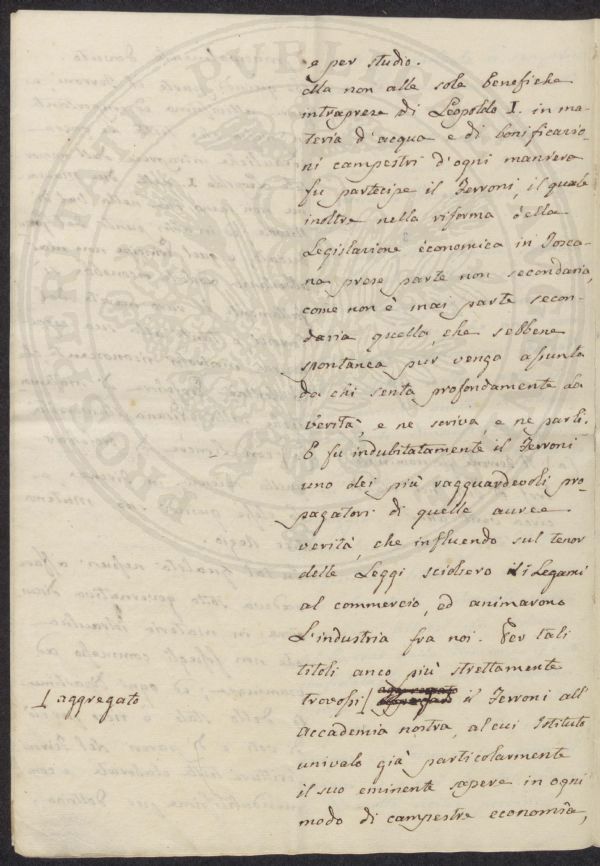 e per studio.
Ma non alle sole benefiche
intraprese di Leopoldo I. in ma-
teria d'acqua e di bonificazio-
ni campestri d'ogni maniera
fu partecipe il Ferroni, il quale
inoltre nella riforma della
Legislazione economica in Tosca-
na prese parte non secondaria,
come non è mai parte secon-
daria quella, che sebbene
spontanea pur venga assunta
da chi senta profondamente la
verità, e ne scriva, e ne parli.
E fu indubitatamente il Ferroni
uno dei più ragguardevoli pro-
pagatori di quelle auree
verità, che influendo sul tenor
delle Leggi sciolsero i Legami
al commercio, ed animarono
L'industria fra noi. Per tali
titoli anco più strettamente
trovossi [ aggregato il Ferroni all'
[ aggregato
Accademia nostra, al cui Istituto
univalo già particolarmente
il suo eminente sapere in ogni
modo di campestre economia,
PVBLICAE
PROSPERITATI